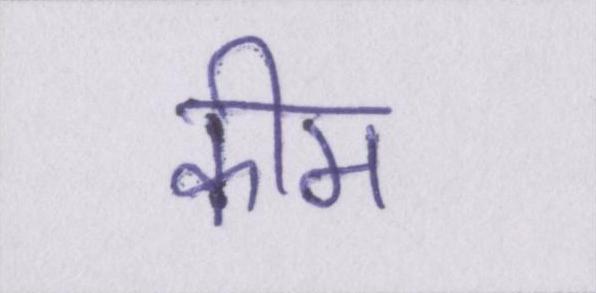 कीम